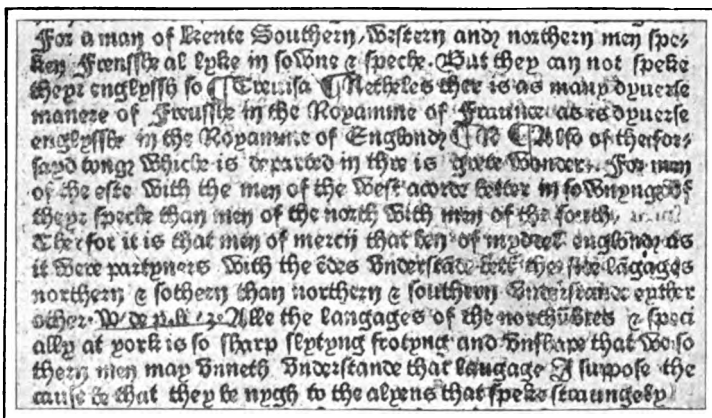 For a man of kente Southern, western and northern men spe-
ken Frenssh al lyke in sowne & speche. But they can not speke
theyr englyssh so ¶ Treuisa ¶ Netheles ther is as many dyuerse
manere of Frenssh in the Royamme of Fraunce as is dyuerse
englyssh in the Royamme of Englond ¶ R ¶ Also of the for-
sayd tong whiche is departed in thre is grete wonder. For men
of the este with the men of the west acorde better in sownynge of
theyr speche than men of the north with men of the south,
Therfor it is that men of mercij that ben of myddel englond as
it were partyners with the endes vnderstande bett the side lāgages
northern & sothern than northern & southern vnderstande eyther
other. W de Alle the langages of the northūbres & speci
ally at york is so sharp slytyng frotyng and vnshape that we so
thern men may vnneth vnderstande that langage I suppose the
cause be that they be nygh to the alyens that speke straungely